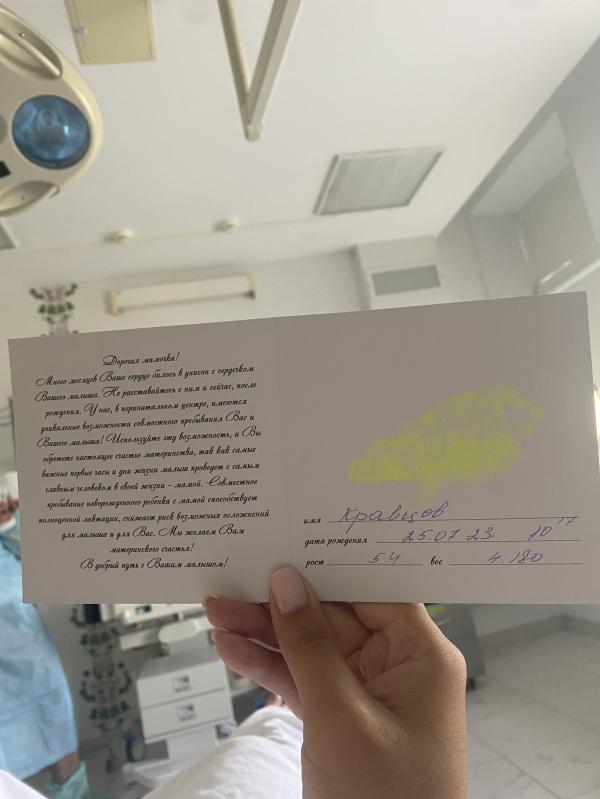 Дорогая мамочка!
Много месяцев Ваше сердце билось в унисон с сердечком
Вашего малыша. Не расставайтесь с ним и сейчас, после
рождения. У нас, в перинатальном центре, имеются
уникальные возможности совместного пребывания Вас и
Вашего малыша! Используйте эту возможность, и Вы
обретете настоящее счастье материнства, так как самые
важные первые часы и дни жизни малыш проведет с самым
главным человеком в своей жизни - мамой. Совместное
пребывание новорожденного ребенка с мамой способствует
полноценной лактации, снижает риск возможных осложнений
для малыша и для Вас. Мы желаем Вам
материнского счастья!
В добрый путь с Вашим малышом!
имя Кравцов
дата рождения 25.07 23. 10 17
рост 54 вес 4.180